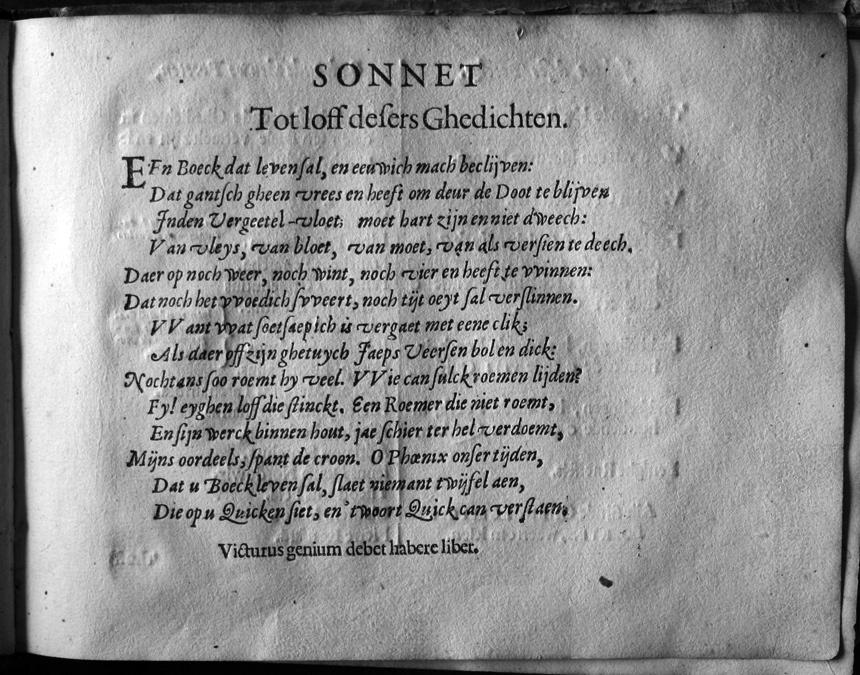 SONNET
Tot loff deſers Ghedichten.
EEn Boeck dat leven ſal, en eeuwich mach beclijven:
Dat gantſch gheen vrees en heeft om deur de Doot te blijven
Jnden Vergeetel-vloet; moet hart zijn en niet dweech:
Van vleys, van bloet, van moet, van als verſien te deech.
Daer op noch weer, noch wint, noch vier en heeft te vvinnen:
Dat noch het vvoedich ſvveert, noch tijt oeyt ſal verſlinnen.
VVant vvat ſoetſaepich is vergaet met eene clik;
Als daer off zijn ghetuych Jaeps Veerſen bol en dick:
Nochtans ſoo roemt hy veel. VVie can ſulck roemen lijden?
Fy! eyghen loff die ſtinckt. Een Roemer die niet roemt,
En ſijn werck binnen hout, jae ſchier ter hel verdoemt,
Mijns oordeels, ſpant de croon. O Phœnix onſer tijden,
Dat u Boeck leven ſal, ſlaet niemant twijfel aen,
Die op u Quicken ſiet, en' twoort Quick can verſtaen.
Victurus genium debet habere liber.